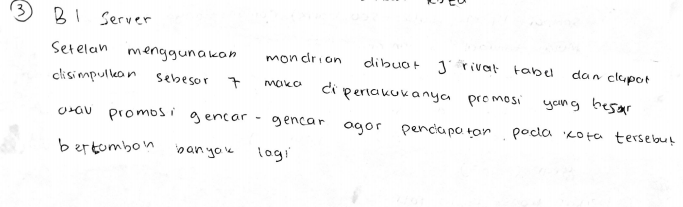 ③ BI Server
Setelah menggunakan mondrian dibuat J rivot tabel dan dapat
disimpulkan sebesar 7 maka diperlakukanya promosi yang besar
atau promosi gencar - gencar agar pendapatan pada kota tersebut
bertambah banyak lagi